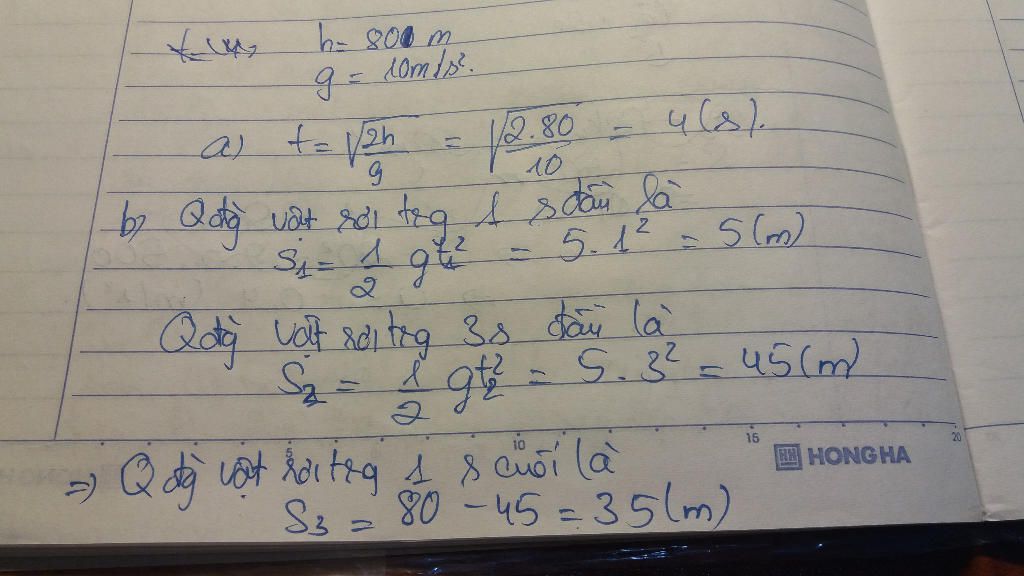 h = 80 m
g = 10m/s².
a) t = √(2h/g) = √(2.80/10) = 4 (s).
b) Qđg vật rơi trg 1 s đầu là
S₁ = 1/2 gt₁² = 5.1² = 5 (m)
Qđg vật rơi trg 3s đầu là
S₂ = 1/2 gt₂² = 5.3² = 45 (m)
5 10 15 20
HH HONG HA
=) Qđg vật rơi trg 1 s cuối là
S₃ = 80 - 45 = 35 (m)